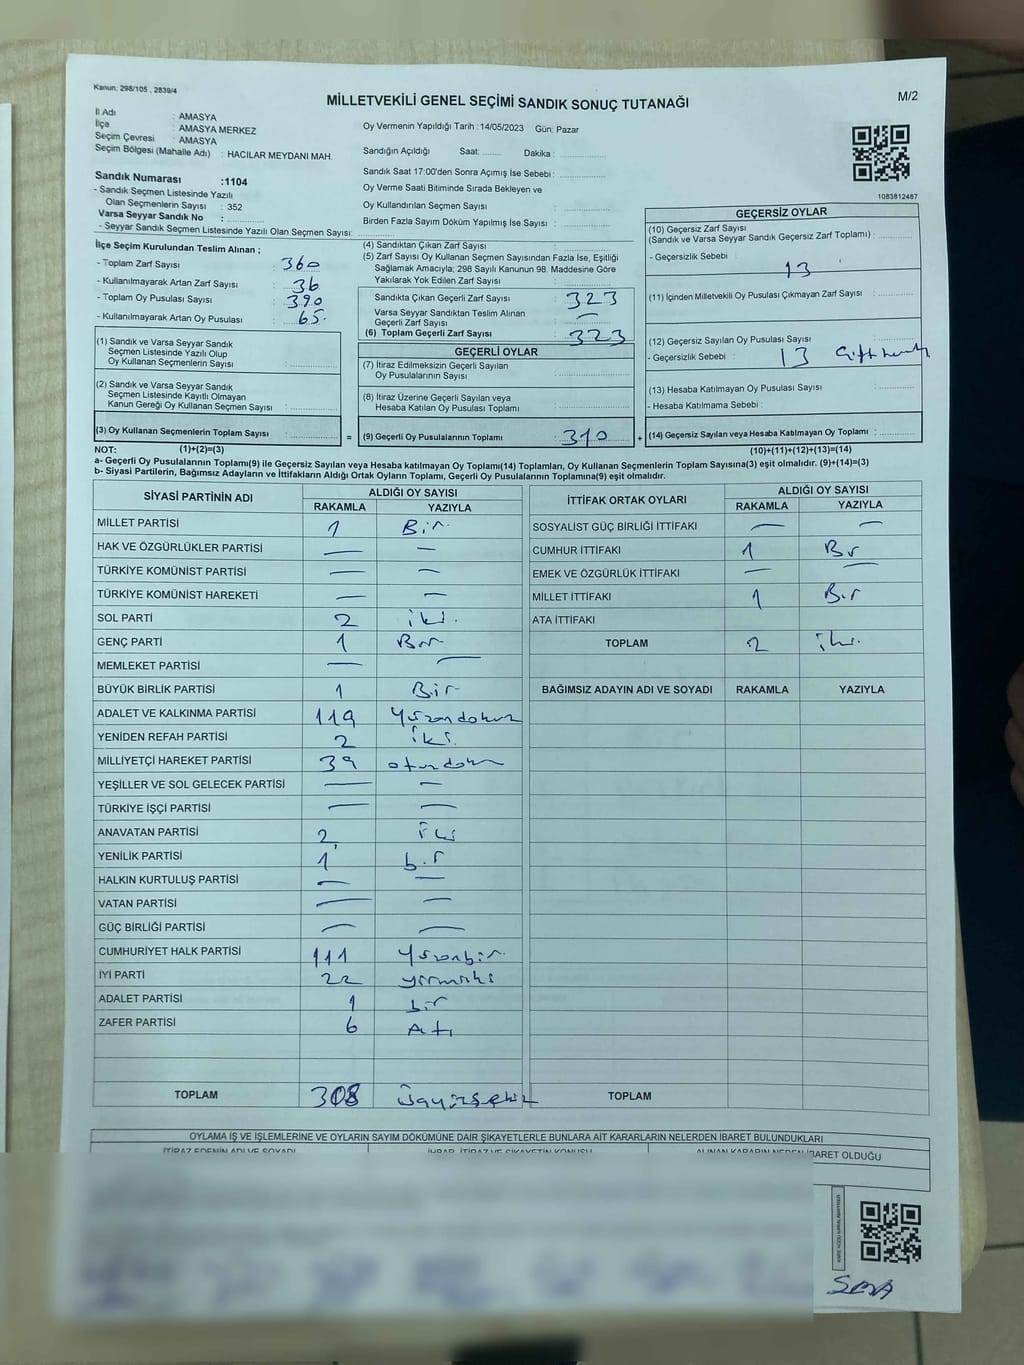 Kanun; 298/105 , 2839/4
MİLLETVEKİLİ GENEL SEÇİMİ SANDIK SONUÇ TUTANAĞI
M/2
İl Adı : AMASYA
İlçe : AMASYA MERKEZ
Seçim Çevresi : AMASYA
Seçim Bölgesi (Mahalle Adı) : HACILAR MEYDANI MAH.
Sandık Numarası :1104
- Sandık Seçmen Listesinde Yazılı
Olan Seçmenlerin Sayısı : 352
Varsa Seyyar Sandık No :
- Seyyar Sandık Seçmen Listesinde Yazılı Olan Seçmen Sayısı:
İlçe Seçim Kurulundan Teslim Alınan ;
- Toplam Zarf Sayısı : 360
- Kullanılmayarak Artan Zarf Sayısı : 36
- Toplam Oy Pusulası Sayısı : 390
- Kullanılmayarak Artan Oy Pusulası : 65
(1) Sandık ve Varsa Seyyar Sandık
Seçmen Listesinde Yazılı Olup
Oy Kullanan Seçmenlerin Sayısı :
(2) Sandık ve Varsa Seyyar Sandık
Seçmen Listesinde Kayıtlı Olmayan
Kanun Gereği Oy Kullanan Seçmen Sayısı :
(3) Oy Kullanan Seçmenlerin Toplam Sayısı :
Oy Vermenin Yapıldığı Tarih :14/05/2023 Gün: Pazar
Sandığın Açıldığı Saat: Dakika :
Sandık Saat 17:00'den Sonra Açımış İse Sebebi :
Oy Verme Saati Bitiminde Sırada Bekleyen ve
Oy Kullandırılan Seçmen Sayısı :
Birden Fazla Sayım Döküm Yapılmış İse Sayısı :
(4) Sandıktan Çıkan Zarf Sayısı :
(5) Zarf Sayısı Oy Kullanan Seçmen Sayısından Fazla İse, Eşitliği
Sağlamak Amacıyla; 298 Sayılı Kanunun 98. Maddesine Göre
Yakılarak Yok Edilen Zarf Sayısı :
Sandıkta Çıkan Geçerli Zarf Sayısı : 323
Varsa Seyyar Sandıktan Teslim Alınan
Geçerli Zarf Sayısı : —
(6) Toplam Geçerli Zarf Sayısı : 323
GEÇERLİ OYLAR
(7) İtiraz Edilmeksizin Geçerli Sayılan
Oy Pusulalarının Sayısı :
(8) İtiraz Üzerine Geçerli Sayılan veya
Hesaba Katılan Oy Pusulası Toplamı :
= (9) Geçerli Oy Pusulalarının Toplamı : 310 +
1083812487
GEÇERSİZ OYLAR
(10) Geçersiz Zarf Sayısı
(Sandık ve Varsa Seyyar Sandık Geçersiz Zarf Toplamı) :
- Geçersizlik Sebebi : 13
(11) İçinden Milletvekili Oy Pusulası Çıkmayan Zarf Sayısı :
(12) Geçersiz Sayılan Oy Pusulası Sayısı :
- Geçersizlik Sebebi : 13
(13) Hesaba Katılmayan Oy Pusulası Sayısı :
- Hesaba Katılmama Sebebi :
(14) Geçersiz Sayılan veya Hesaba Katılmayan Oy Toplamı :
NOT: (1)+(2)=(3) (10)+(11)+(12)+(13)=(14)
a- Geçerli Oy Pusulalarının Toplamı(9) ile Geçersiz Sayılan veya Hesaba katılmayan Oy Toplamı(14) Toplamları, Oy Kullanan Seçmenlerin Toplam Sayısına(3) eşit olmalıdır. (9)+(14)=(3)
b- Siyasi Partilerin, Bağımsız Adayların ve İttifakların Aldığı Ortak Oyların Toplamı, Geçerli Oy Pusulalarının Toplamına(9) eşit olmalıdır.
SİYASİ PARTİNİN ADI ALDIĞI OY SAYISI
RAKAMLA YAZIYLA
MİLLET PARTİSİ 1 Bir
HAK VE ÖZGÜRLÜKLER PARTİSİ — —
TÜRKİYE KOMÜNİST PARTİSİ — —
TÜRKİYE KOMÜNİST HAREKETİ — —
SOL PARTİ 2 iki
GENÇ PARTİ 1 Bir
MEMLEKET PARTİSİ — —
BÜYÜK BİRLİK PARTİSİ 1 Bir
ADALET VE KALKINMA PARTİSİ 119 Yüzondokuz
YENİDEN REFAH PARTİSİ 2 iki
MİLLİYETÇİ HAREKET PARTİSİ 39
YEŞİLLER VE SOL GELECEK PARTİSİ — —
TÜRKİYE İŞÇİ PARTİSİ — —
ANAVATAN PARTİSİ 2 İki
YENİLİK PARTİSİ 1 bir
HALKIN KURTULUŞ PARTİSİ — —
VATAN PARTİSİ — —
GÜÇ BİRLİĞİ PARTİSİ — —
CUMHURİYET HALK PARTİSİ 111 Yüzonbir
İYİ PARTİ 22 yirmiiki
ADALET PARTİSİ 1 bir
ZAFER PARTİSİ 6 Altı
TOPLAM 308 Üçyüzsekiz
İTTİFAK ORTAK OYLARI ALDIĞI OY SAYISI
RAKAMLA YAZIYLA
SOSYALİST GÜÇ BİRLİĞİ İTTİFAKI — —
CUMHUR İTTİFAKI 1 Bir
EMEK VE ÖZGÜRLÜK İTTİFAKI — —
MİLLET İTTİFAKI 1 Bir
ATA İTTİFAKI
TOPLAM 2 iki
BAĞIMSIZ ADAYIN ADI VE SOYADI RAKAMLA YAZIYLA
TOPLAM
OYLAMA İŞ VE İŞLEMLERİNE VE OYLARIN SAYIM DÖKÜMÜNE DAİR ŞİKAYETLERLE BUNLARA AİT KARARLARIN NELERDEN İBARET BULUNDUKLARI
İTİRAZ EDENİN ADI VE SOYADI İHBAR, İTİRAZ VE ŞİKAYETİN KONUSU ALINAN KARARIN NEDEN İBARET OLDUĞU